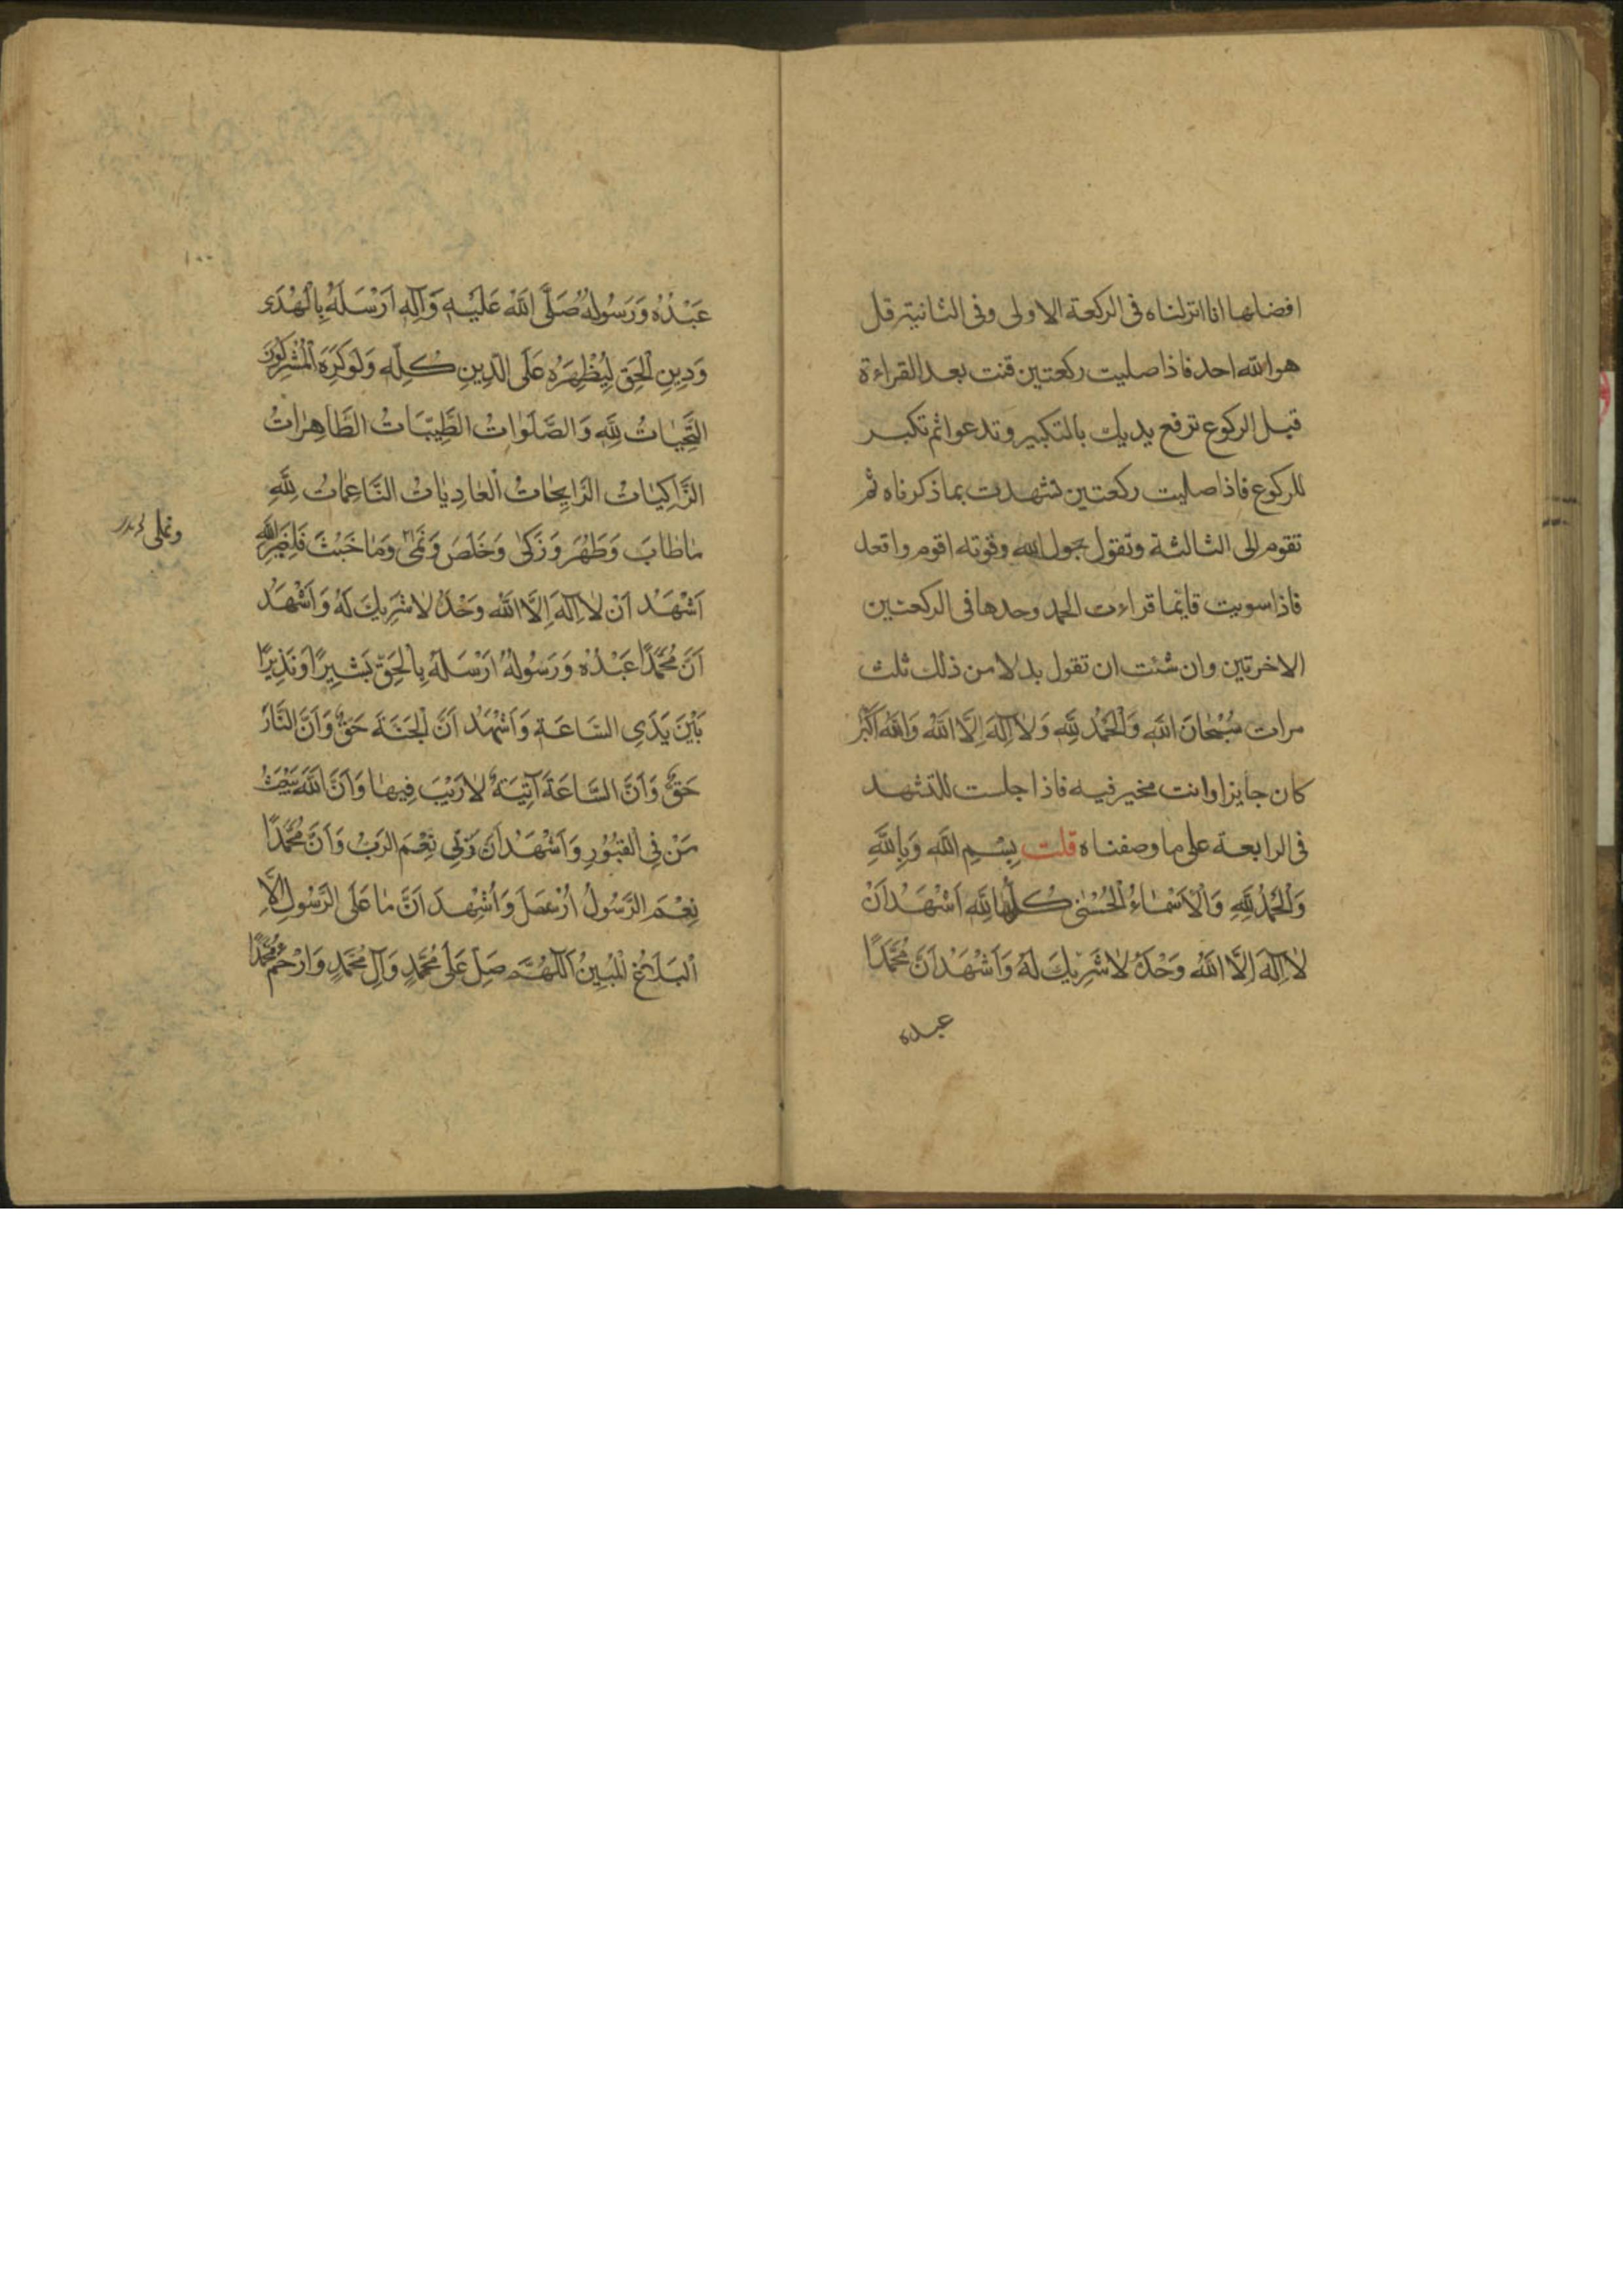 افضلها انا انزلناه فى الركعة الاولى وفى الثانية قل
هو الله احد فاذا صليت ركعتين قنت بعد القراءة
قبل الركوع ترفع يديك بالتكبير وتدعوا ثم تكبر
للركوع فاذا صليت ركعتين تشهدت بما ذكرناه ثم
تقوم الى الثالثة وتقول بحول الله وقوته اقوم واقعد
فاذا سويت قايما قراءت الحمد وحدها فى الركعتين
الاخرتين وان شئت ان تقول بدلا من ذلك ثلث
مرات سُبْحانَ اللهِ وَالْحَمْدُ لِلّهِ وَلا اِلهَ اِلَّا اللهُ وَاللهُ اَكْبَرُ
كان جايزا وانت مخير فيه فاذا جلست للتشهد
فى الرابعة على ما وصفناه قلت بِسْمِ اللهِ وَبِاللهِ
وَالْحَمْدُ لِلّهِ وَالْاَسْماءُ الْحُسْنى كُلُّها لِلّهِ اَشْهَدُ اَنْ
لا اِلهَ اِلَّا اللهُ وَحْدَهُ لا شَرِيكَ لَهُ وَاَشْهَدُ اَنَّ مُحَمَّدًا
عبده
١٠٠
عَبْدُهُ وَرَسُولُهُ صَلَّى اللهُ عَلَيْهِ وَآلِهِ اَرْسَلَهُ بِالْهُدى
وَدِينِ الْحَقِّ لِيُظْهِرَهُ عَلَى الدِّينِ كُلِّهِ وَلَوْ كَرِهَ الْمُشْرِكُونَ
التَّحِيّاتُ لِلّهِ وَالصَّلَواتُ الطَّيِّباتُ الطَّاهِراتُ
الزَّاكِياتُ الرَّايِحاتُ الْغادِياتُ النَّاعِماتُ لِلّهِ
ما طابَ وَطَهُرَ وَزَكى وَخَلَصَ وَنَمى وَما خَبُثَ فَلِغَيْرِ اللهِ
اَشْهَدُ اَنْ لا اِلهَ اِلَّا اللهُ وَحْدَهُ لا شَرِيكَ لَهُ وَاَشْهَدُ
اَنَّ مُحَمَّدًا عَبْدُهُ وَرَسُولُهُ اَرْسَلَهُ بِالْحَقِّ بَشِيرًا وَنَذِيرًا
بَيْنَ يَدَيِ السَّاعَةِ وَاَشْهَدُ اَنَّ الْجَنَّةَ حَقٌّ وَاَنَّ النَّارَ
حَقٌّ وَاَنَّ السَّاعَةَ آتِيَةٌ لا رَيْبَ فِيها وَاَنَّ اللهَ يَبْعَثُ
مَنْ فِي الْقُبُورِ وَاَشْهَدُ اَنَّ رَبِّي نِعْمَ الرَّبُّ وَاَنَّ مُحَمَّدًا
نِعْمَ الرَّسُولُ اُرْسِلَ وَاَشْهَدُ اَنَّ ما عَلَى الرَّسُولِ اِلَّا
الْبَلاغُ الْمُبِينُ اَللّهُمَّ صَلِّ عَلى مُحَمَّدٍ وَآلِ مُحَمَّدٍ وَارْحَمْ مُحَمَّدًا